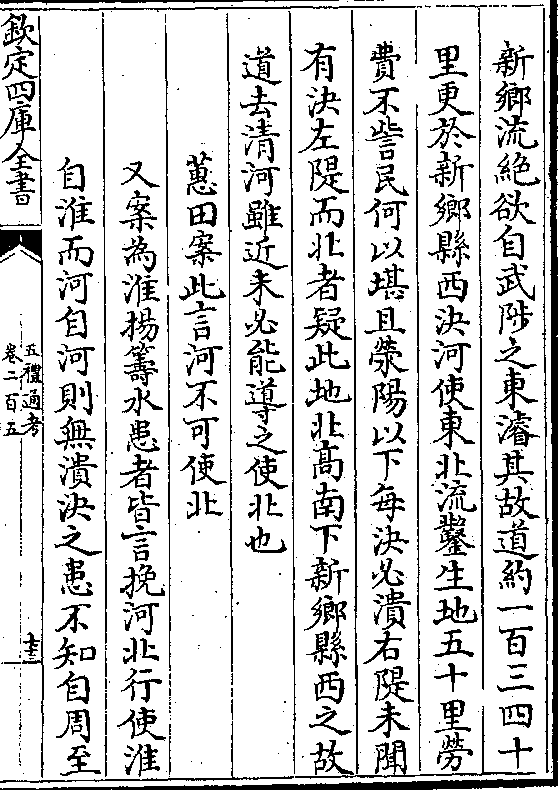 新鄉流絕欲自武陟之東濬其故道約一百三四十
里更於新鄉縣西決河使東北流鑿生地五十里勞
費不訾民何以堪且滎陽以下每決必潰右隄未聞
有決左隄而北者疑此地北高南下新鄉縣西之故
道去清河雖近未必能導之使北也
蕙田案此言河不可使北
又案為淮揚籌水患者皆言挽河北行使淮
自淮而河自河則無潰決之患不知自周至
欽定四庫全書
五禮通考
卷二百五
十三